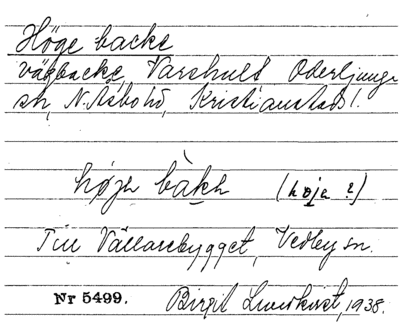 Höge backe
vägbacke, Varshult Oderljunga
sn, N. Åsbo hd, Kristianstads l.
højə bàkə (høje ?)
Till Vällarebygget, Vedby sn.
Nr 5499. Birgit Lundkvist, 1938.